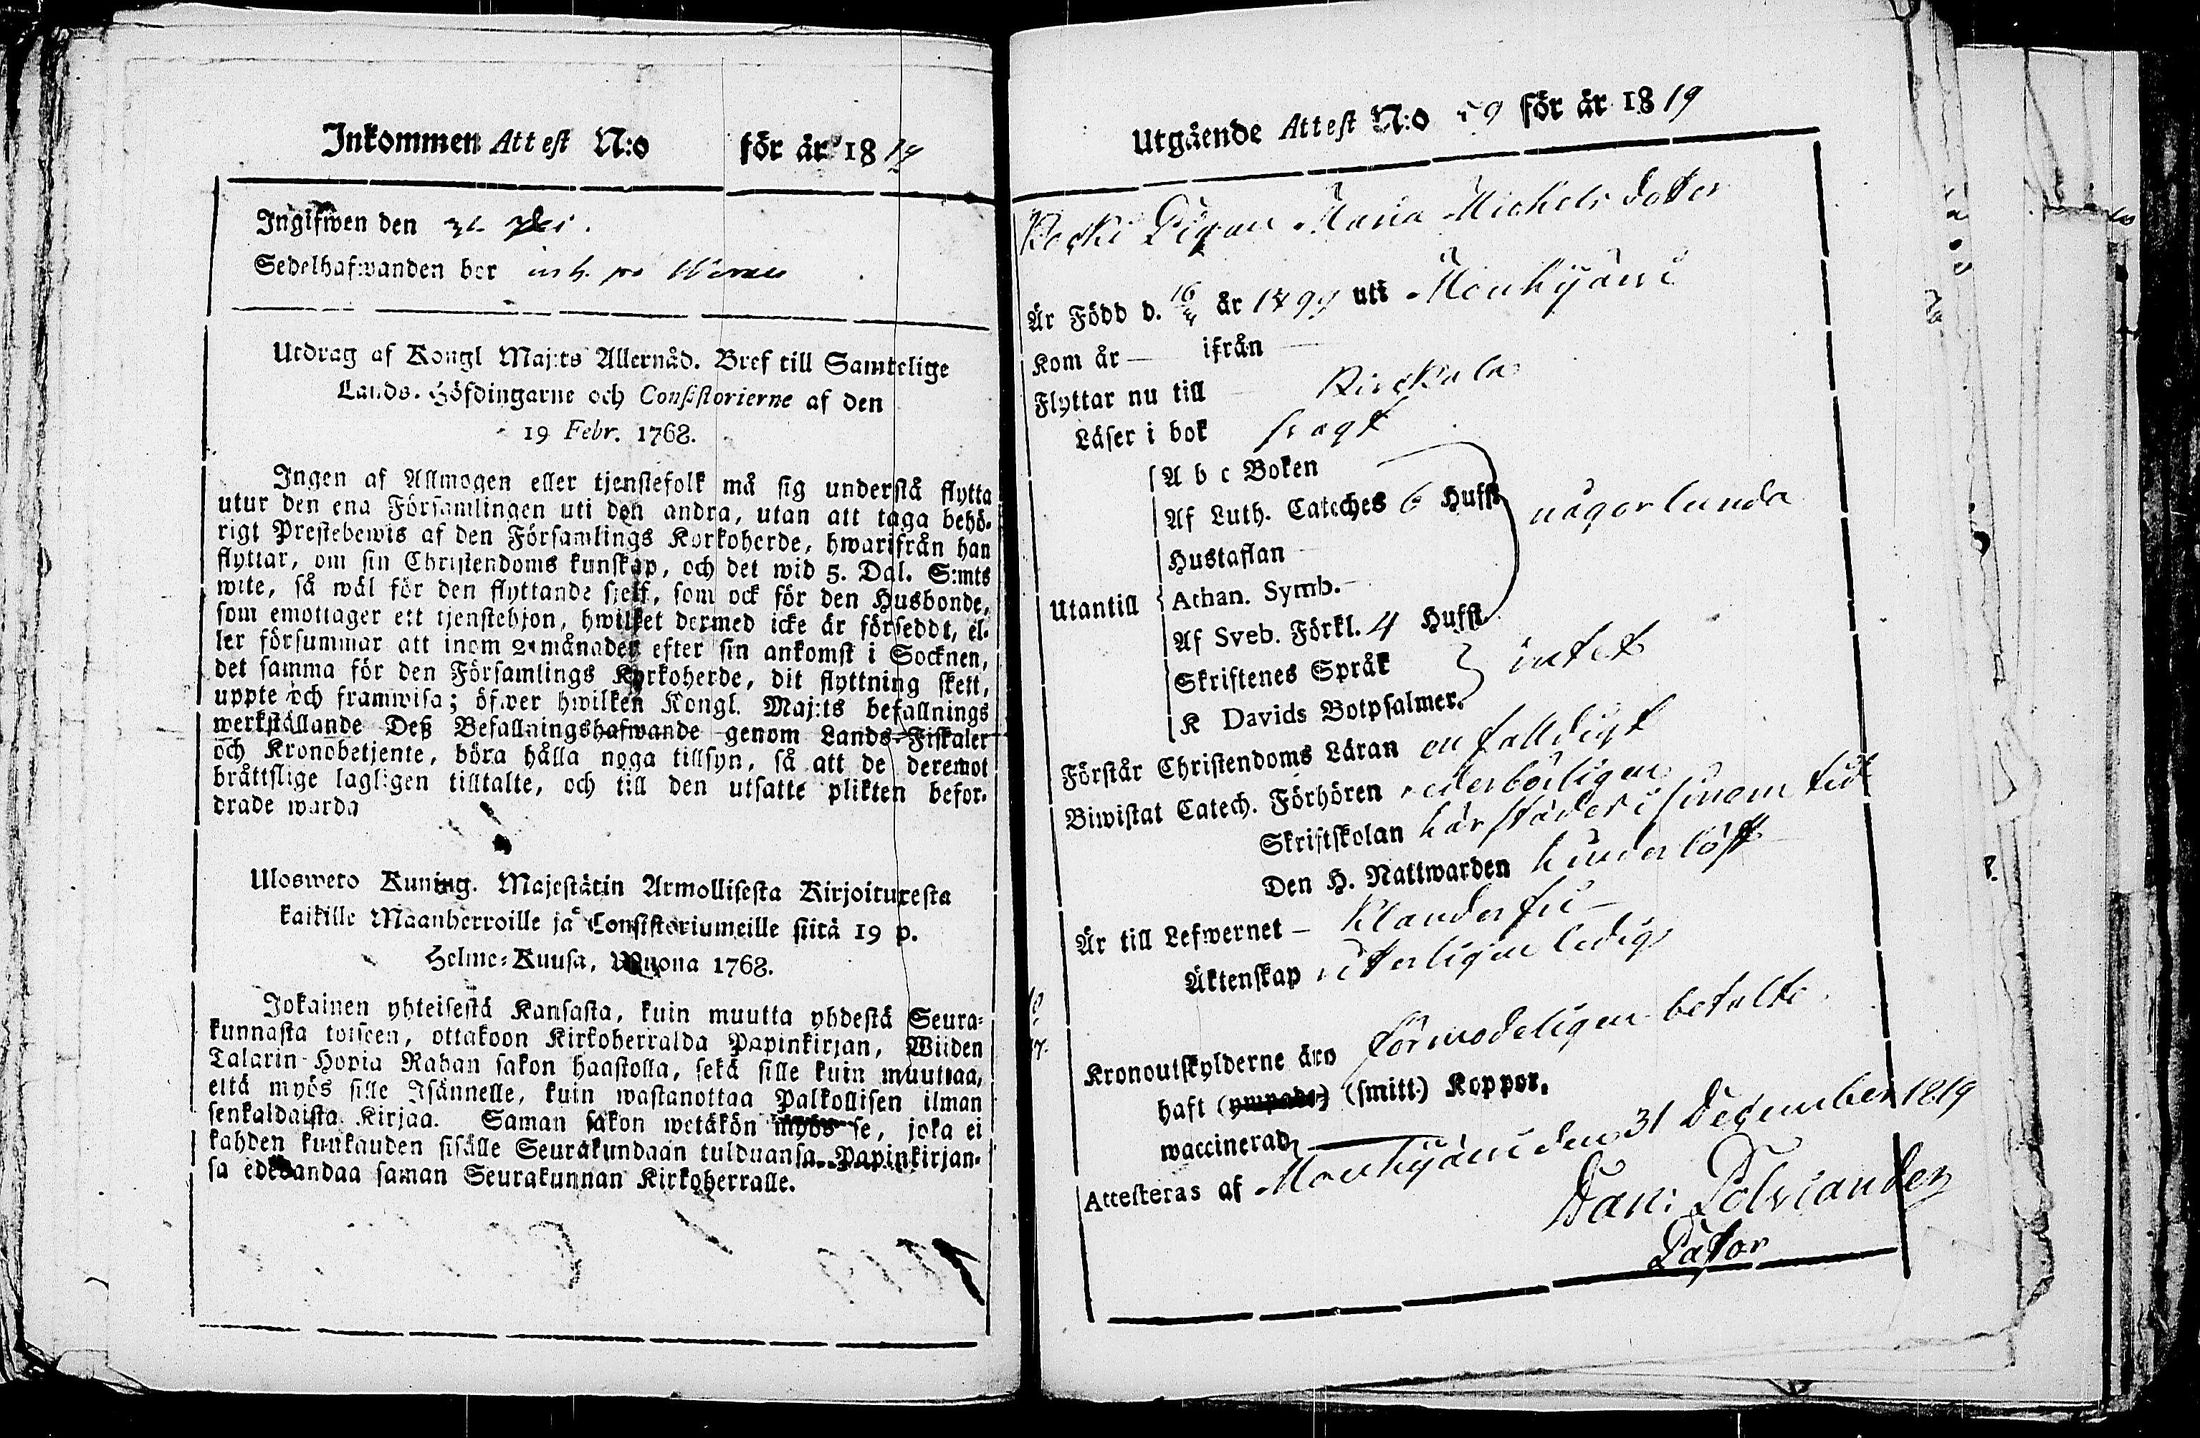 Inkommen Attest N:o för år 1819
Ingifwen den
Sedelhafwanden bor
Utdrag af Kongl Maj:ts Allernåd. Bref till Samtelige
Lands-Höfdingarne och Consistorierne af den
19 Febr. 1768.
Ingen af Allmogen eller tjenstefolk må sig understå flytta
utur den ena Församlingen uti den andra, utan att taga behö-
rigt Prestebewis af den Församlings Kyrkoherde, hwarifrån han
flyttar, om sin Christendoms kunskap, och det wid 5. Dal. S:mts
wite, så wäl för den flyttande sjelf, som ock för den Husbonde,
som emottager ett tjenstehjon, hwilket dermed icke är försedt, el-
ler försummar att inom 2 månader efter sin ankomst i Socknen,
det samma för den Församlings Kyrkoherde, dit flyttning skett,
uppte och framwisa; öfwer hwilken Kongl. Maj:ts befallnings
werkställande Deß Befallningshafwande genom Lands-Fiskaler
och Kronobetjente, böra hålla noga tillsyn, så att de deremot
bråttslige lagligen tilltalte, och till den utsatte plikten befor-
drade warda
Uloswero Kuning. Majestätin Armollisesta Kirjoituxesta
kaikille Maanherroille ja Consistoriumeille siitä 19 p.
Helme-Kuusa, Wuona 1768.
Jokainen yhteisestä Kansasta, kuin muutta yhdestä Seura-
kunnasta toiseen, ottakoon Kirkoherralda Papinkirjan, Wiiden
Talarin Hopia Rahan sakon haastolla, sekä sille kuin muuttaa,
että myös sille Isännelle, kuin wastanottaa Palkollisen ilman
senkaldaista Kirjaa. Saman sakon wetäkön myös se, joka ei
kahden kuukauden sisälle Seurakundaan tulduansa Papinkirjan-
sa edesandaa saman Seurakunnan Kirkoherralle.
Utgående Attest N:o 59 för år 1819
Pigan Maria Michels dotter
Är Född d. 16/4 år 1799 uti Mouhijärvi
Kom år — ifrån —
Flyttar nu till Birckala
Läser i bok svagt
Utantill
A b c Boken
Af Luth. Cateches 6 Hufst någorlunda
Hustaflan
Athan. Symb.
Af Sveb. Förkl. 4 Hufst
Skriftenes Språk intet
K Davids Botpsalmer.
Förstår Christendoms Läran enfalldigt
Biwistat Catech. Förhören vederbörligen
Skriftskolan härstädes i sinom tid
Den H. Nattwarden hinderlöst
Är till Lefwernet — Klanderfri —
Äktenskap veterligen ledig
Kronoutskylderne äro förmodeligen betalte.
haft (ympade) (smitt.) Koppor.
waccinerad
Attesteras af Mouhijärvi den 31 December 1819
Dan: Polviander
Pastor